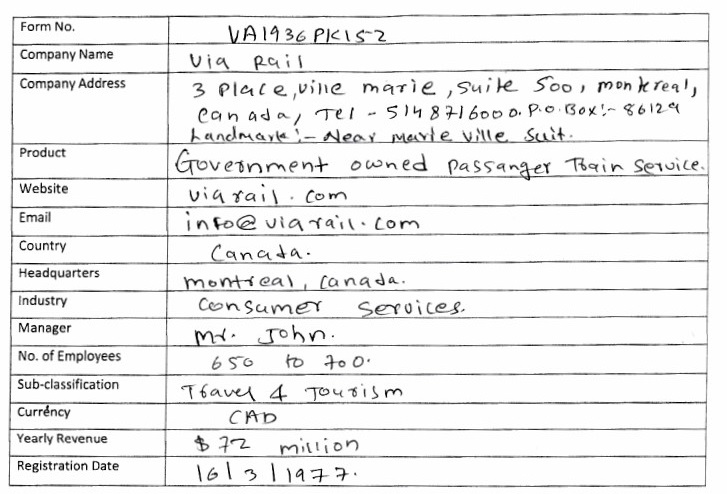 Form No. VA1936PK15-2
Company Name Via Rail
Company Address 3 Place, ville marie, Suite 500, montreal,
Canada, Tel - 5148716000. P.O. Box:- 86129
Landmark:- Near marie ville suit.
Product Government owned passanger Train service.
Website viarail.com
Email info@viarail.com
Country Canada.
Headquarters montreal, Canada.
Industry Consumer Services.
Manager Mr. John.
No. of Employees 650 to 700.
Sub-classification Travel & Tourism
Currency CAD
Yearly Revenue $72 million
Registration Date 16/3/1977.